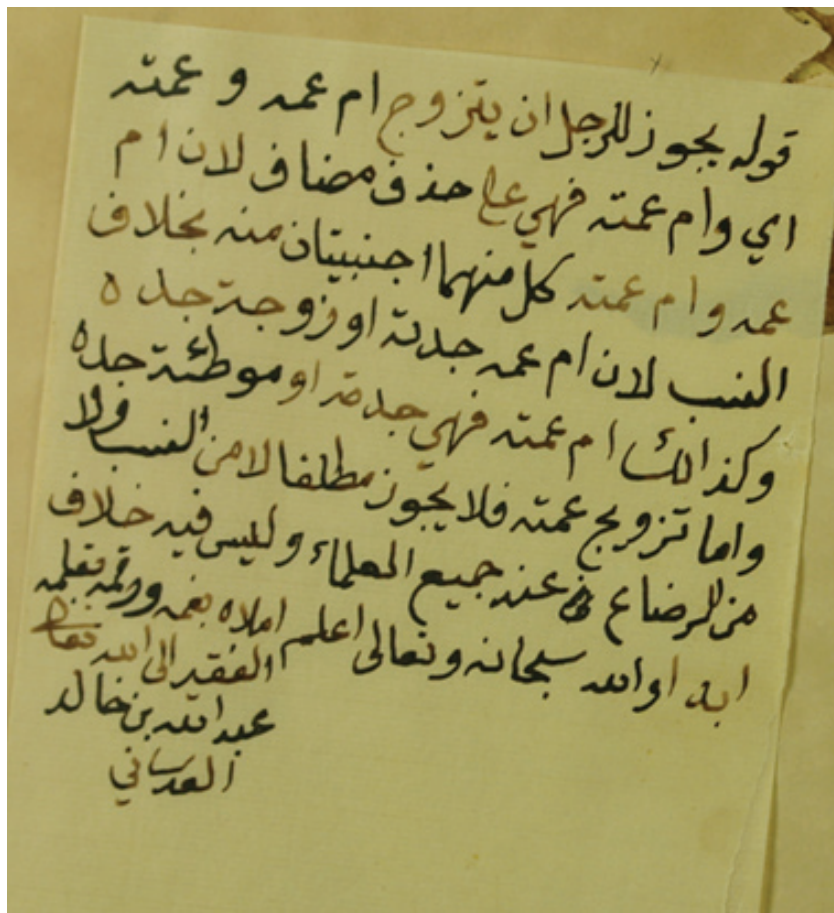 قوله يجوز للرجل ان يتزوج ام عمه و عمته
اي وام عمته فهي على حذف مضاف لان ام
عمه وام عمته كل منهما اجنبيتان منه بخلاف
النسب لان ام عمه جدته او زوجة جده
وكذالك ام عمته فهي جدته او موطئة جده
واما تزويج عمته فلا يجوز مطلقا لا من النسب ولا
من الرضاع عند جميع العلماء وليس فيه خلاف
ابدا والله سبحانه وتعالى اعلم املاه بفمه ورقمه بقلمه
الفقير الى الله تعالى
عبد الله بن خالد
العدساني